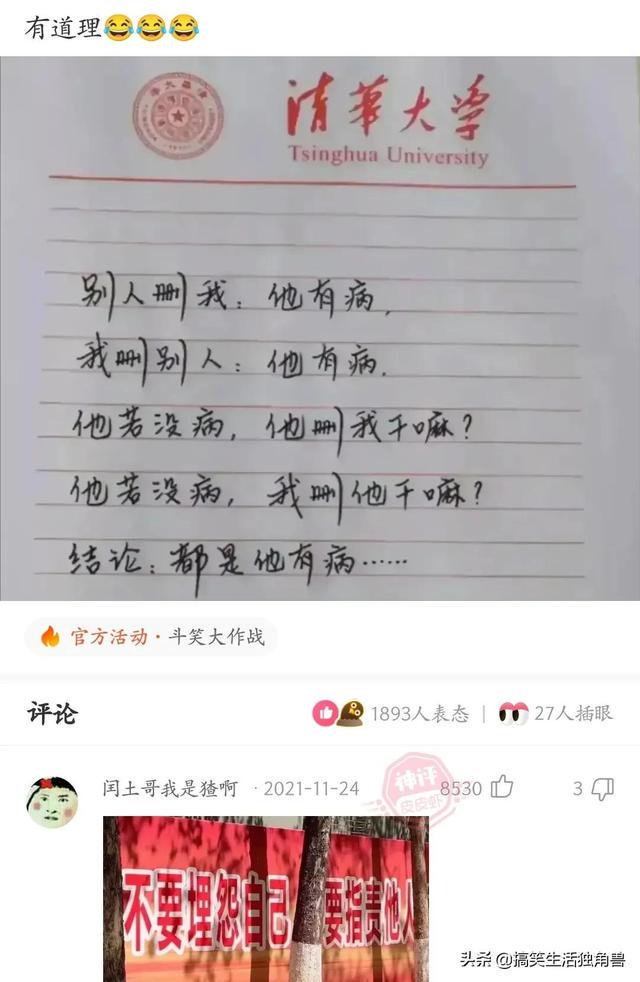 有道理😂😂😂
清華大学
Tsinghua University
别人删我：他有病.
我删别人：他有病.
他若没病，他删我干嘛？
他若没病，我删他干嘛？
结论：都是他有病……
官方活动·斗笑大作战
评论
1893人表态
27人插眼
闰土哥我是猹啊 ·2021-11-24
神评
皮皮虾
8530
3
不要埋怨自己 要指责他人
头条 @搞笑生活独角兽